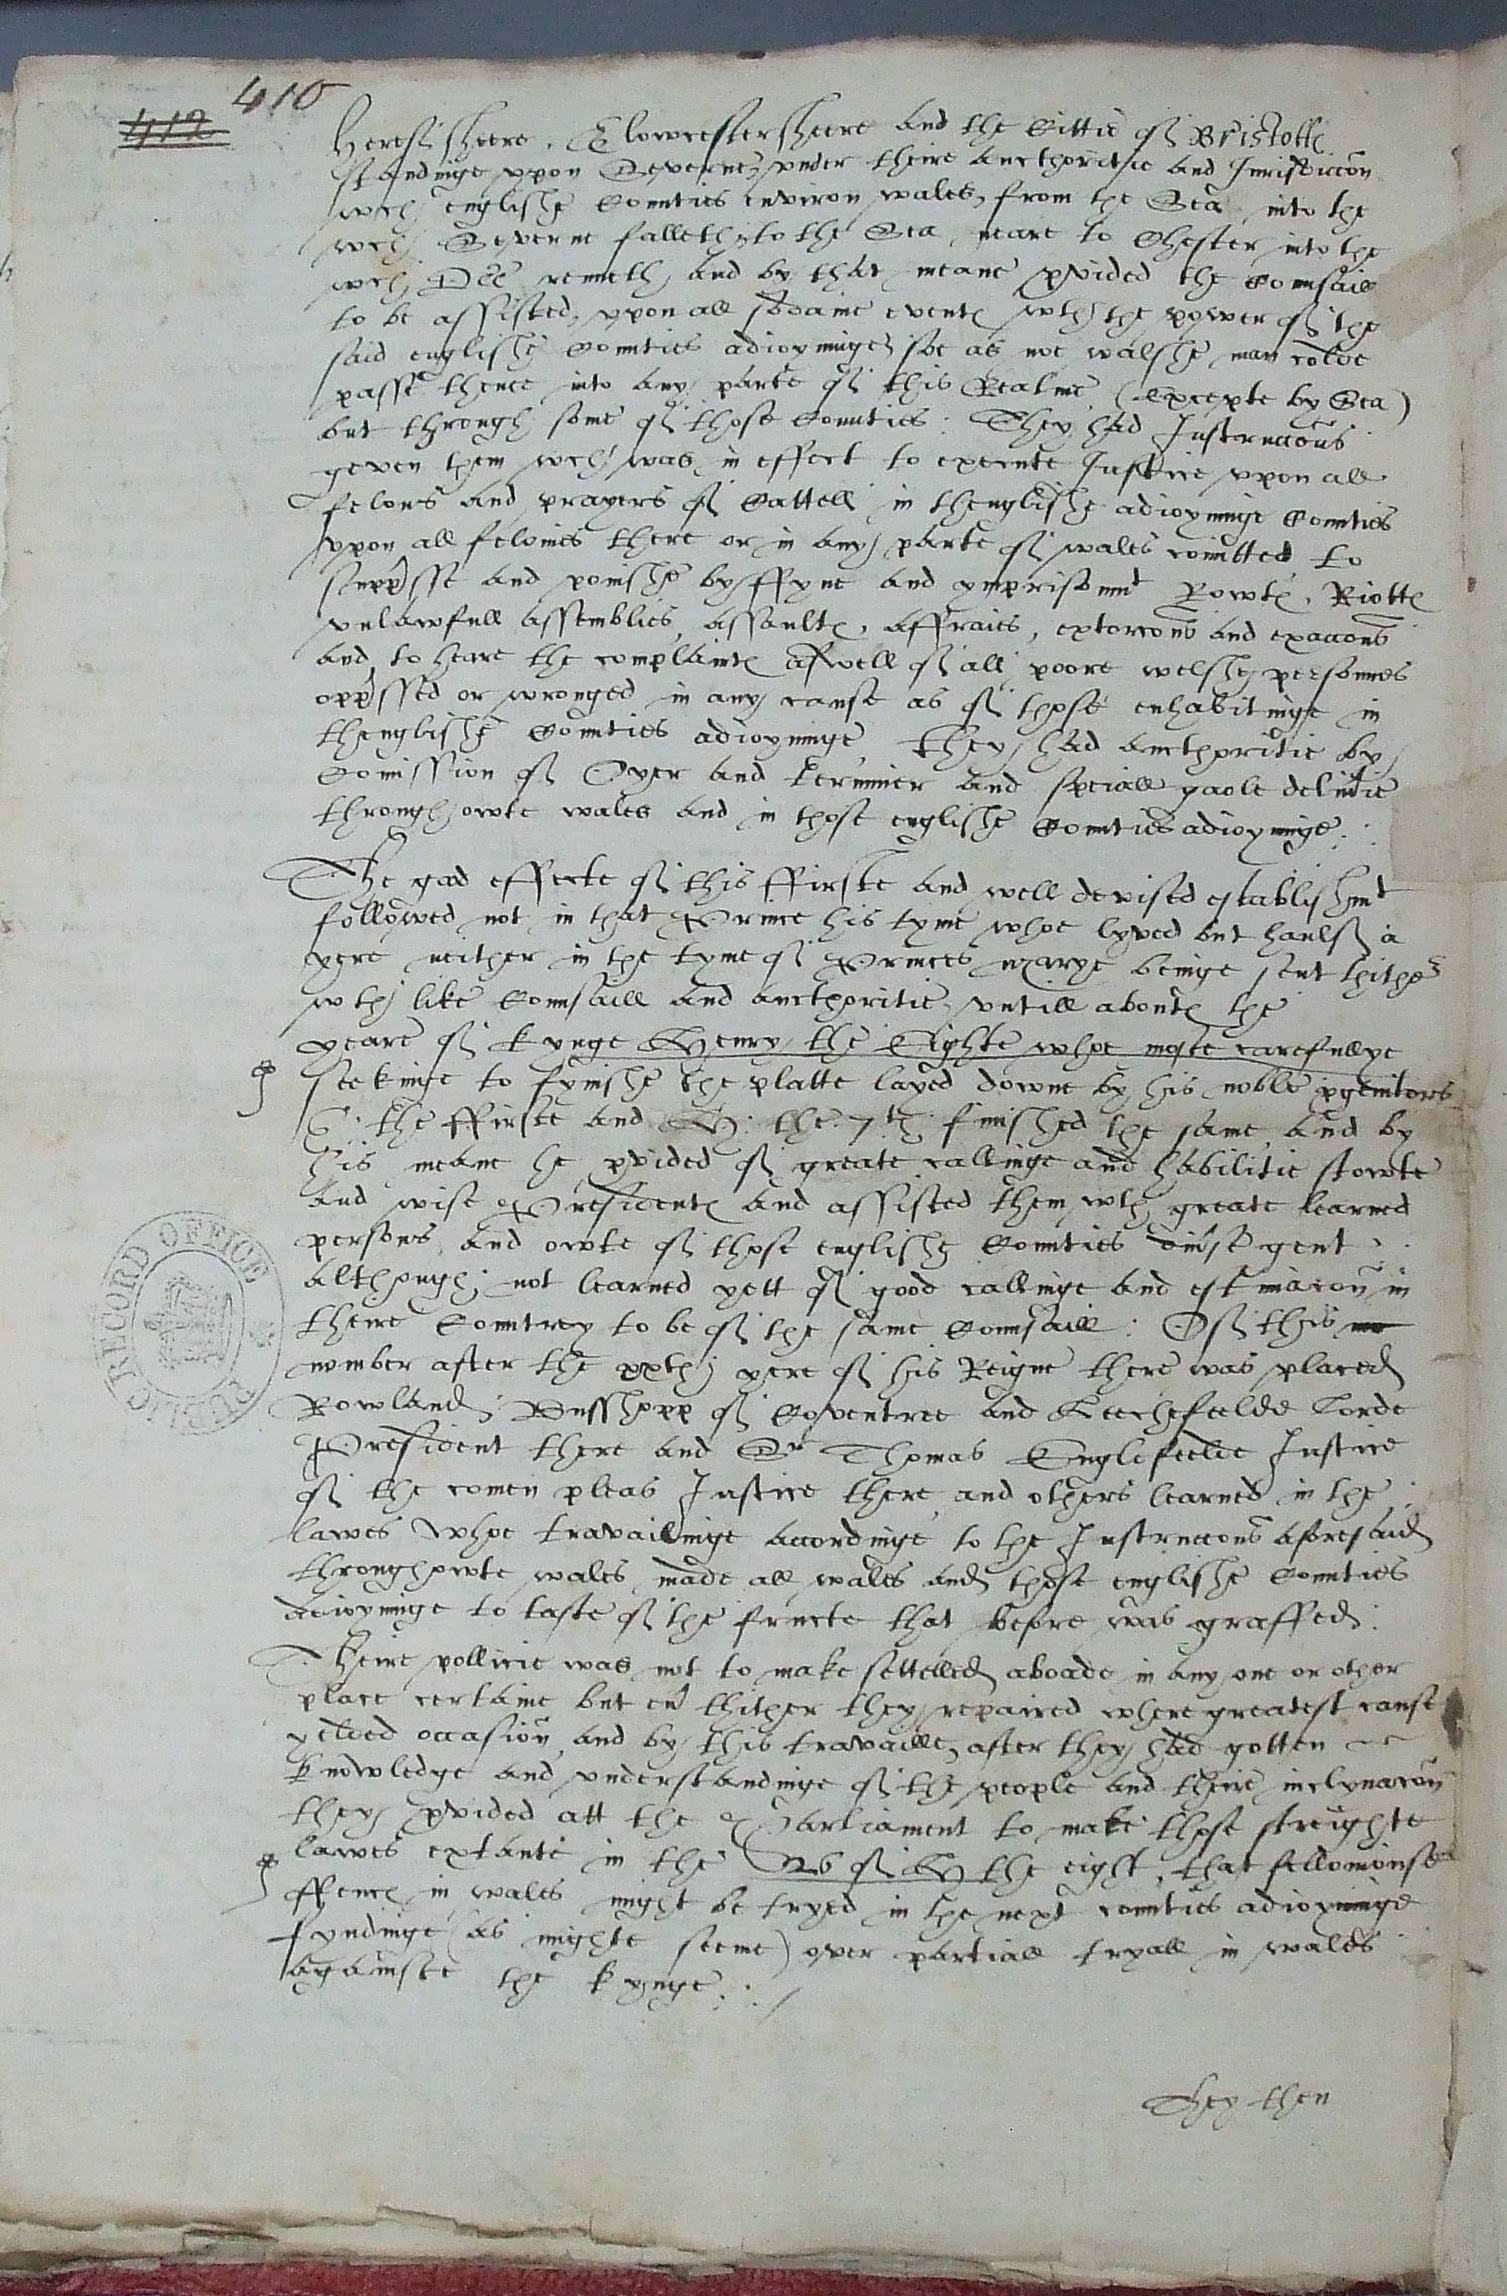 410
412
Herefsheere, Glowcestersheere and the Cittie of Bristoll
standinge vpon Severne, vnder theire aucthoritie and Jurisdiccon
wch englishe Counties environ wales, from the Sea into the
wch Severne falleth, to the Sea neare to Chester into the
wch Dee renneth, and by that meane pvided the Counsaill
to be assisted, vpon all sodaine events wth the power of the
said englishe Counties adioyninge, soe as noe walshe man colde
passe thence into any parte of this Realme (excepte by Sea)
but through some of those Counties: They had Instruccons
geven them wch was in effect to execute Justice vpon all
felons and prayers of Cattell in thenglishe adioyninge Counties
vpon all felonies there or in any parte of wales comitted to
suppsse and ponishe by ffyne and ymprisonmt Rowts, Riotts
vnlawfull assemblies, assaults, affraies, extorcons and exaccons
and to heare the complaints aswell of all poore welshe personnes
oppssed or wronged in any cause as of those enhabitinge in
thenglishe Counties adioyninge they had aucthoritie by
Comission of Oyer and terminer and speciall gaole deliuie
throughowte wales and in those englishe Counties adioyninge:
The good effecte of this ffirste and well devised establishmt
followed not in that Prince his tyme whoe lyved but haulf a
yere neither in the tyme of Princes marye beinge sent thither
wth like Counsaill and aucthoritie, vntill aboute the
yeare of kynge Henry the Eighte whoe moste carefullye
seekinge to fynishe the platte layed downe by his noble pgenitors
E: the ffirste and H: the 7th finished the same, and by
his meane he pvided of greate callinge and habilitie stowte
and wise Presidents and assisted them wth greate learned
persons, and owte of those englishe Counties diuse gent
althoughe not learned yett of good callinge and estimacon in
theire Countrey to be of the same Counsaill: Of this
nomber after the xxth yere of his Reigne there was placed
Rowland Busshopp of Coventree and Leechefeelde Lorde
President there and Sr Thomas Englefeelde Justice
of the comen pleas Justice there, and others learned in the
lawes whoe travailinge accordinge to the Instruccons aforesaid
throughowte wales made all wales and those englishe Counties
adioyninge to taste of the fructe that before was graffed:
Theire pollicie was not to make settelled aboade in any one or other
place certaine but eu thither they repaired where greatest cause
yelded occasion, and by this travaille, after they had gotten
knowledge and vnderstandinge of the people and theire inclynacon
they pvided att the Parliament to make those streighte
lawes extante in the 26 of H the eight, that fellonouse
offences in wales might be tryed in the next counties adioyninge
fyndinge (as mighte seeme) over partiall tryall in wales
againste the kynge:
They then
PUBLIC RECORD OFFICE